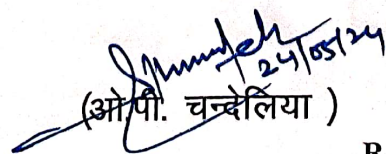 24/05/24
(ओ.पी. चन्देलिया )